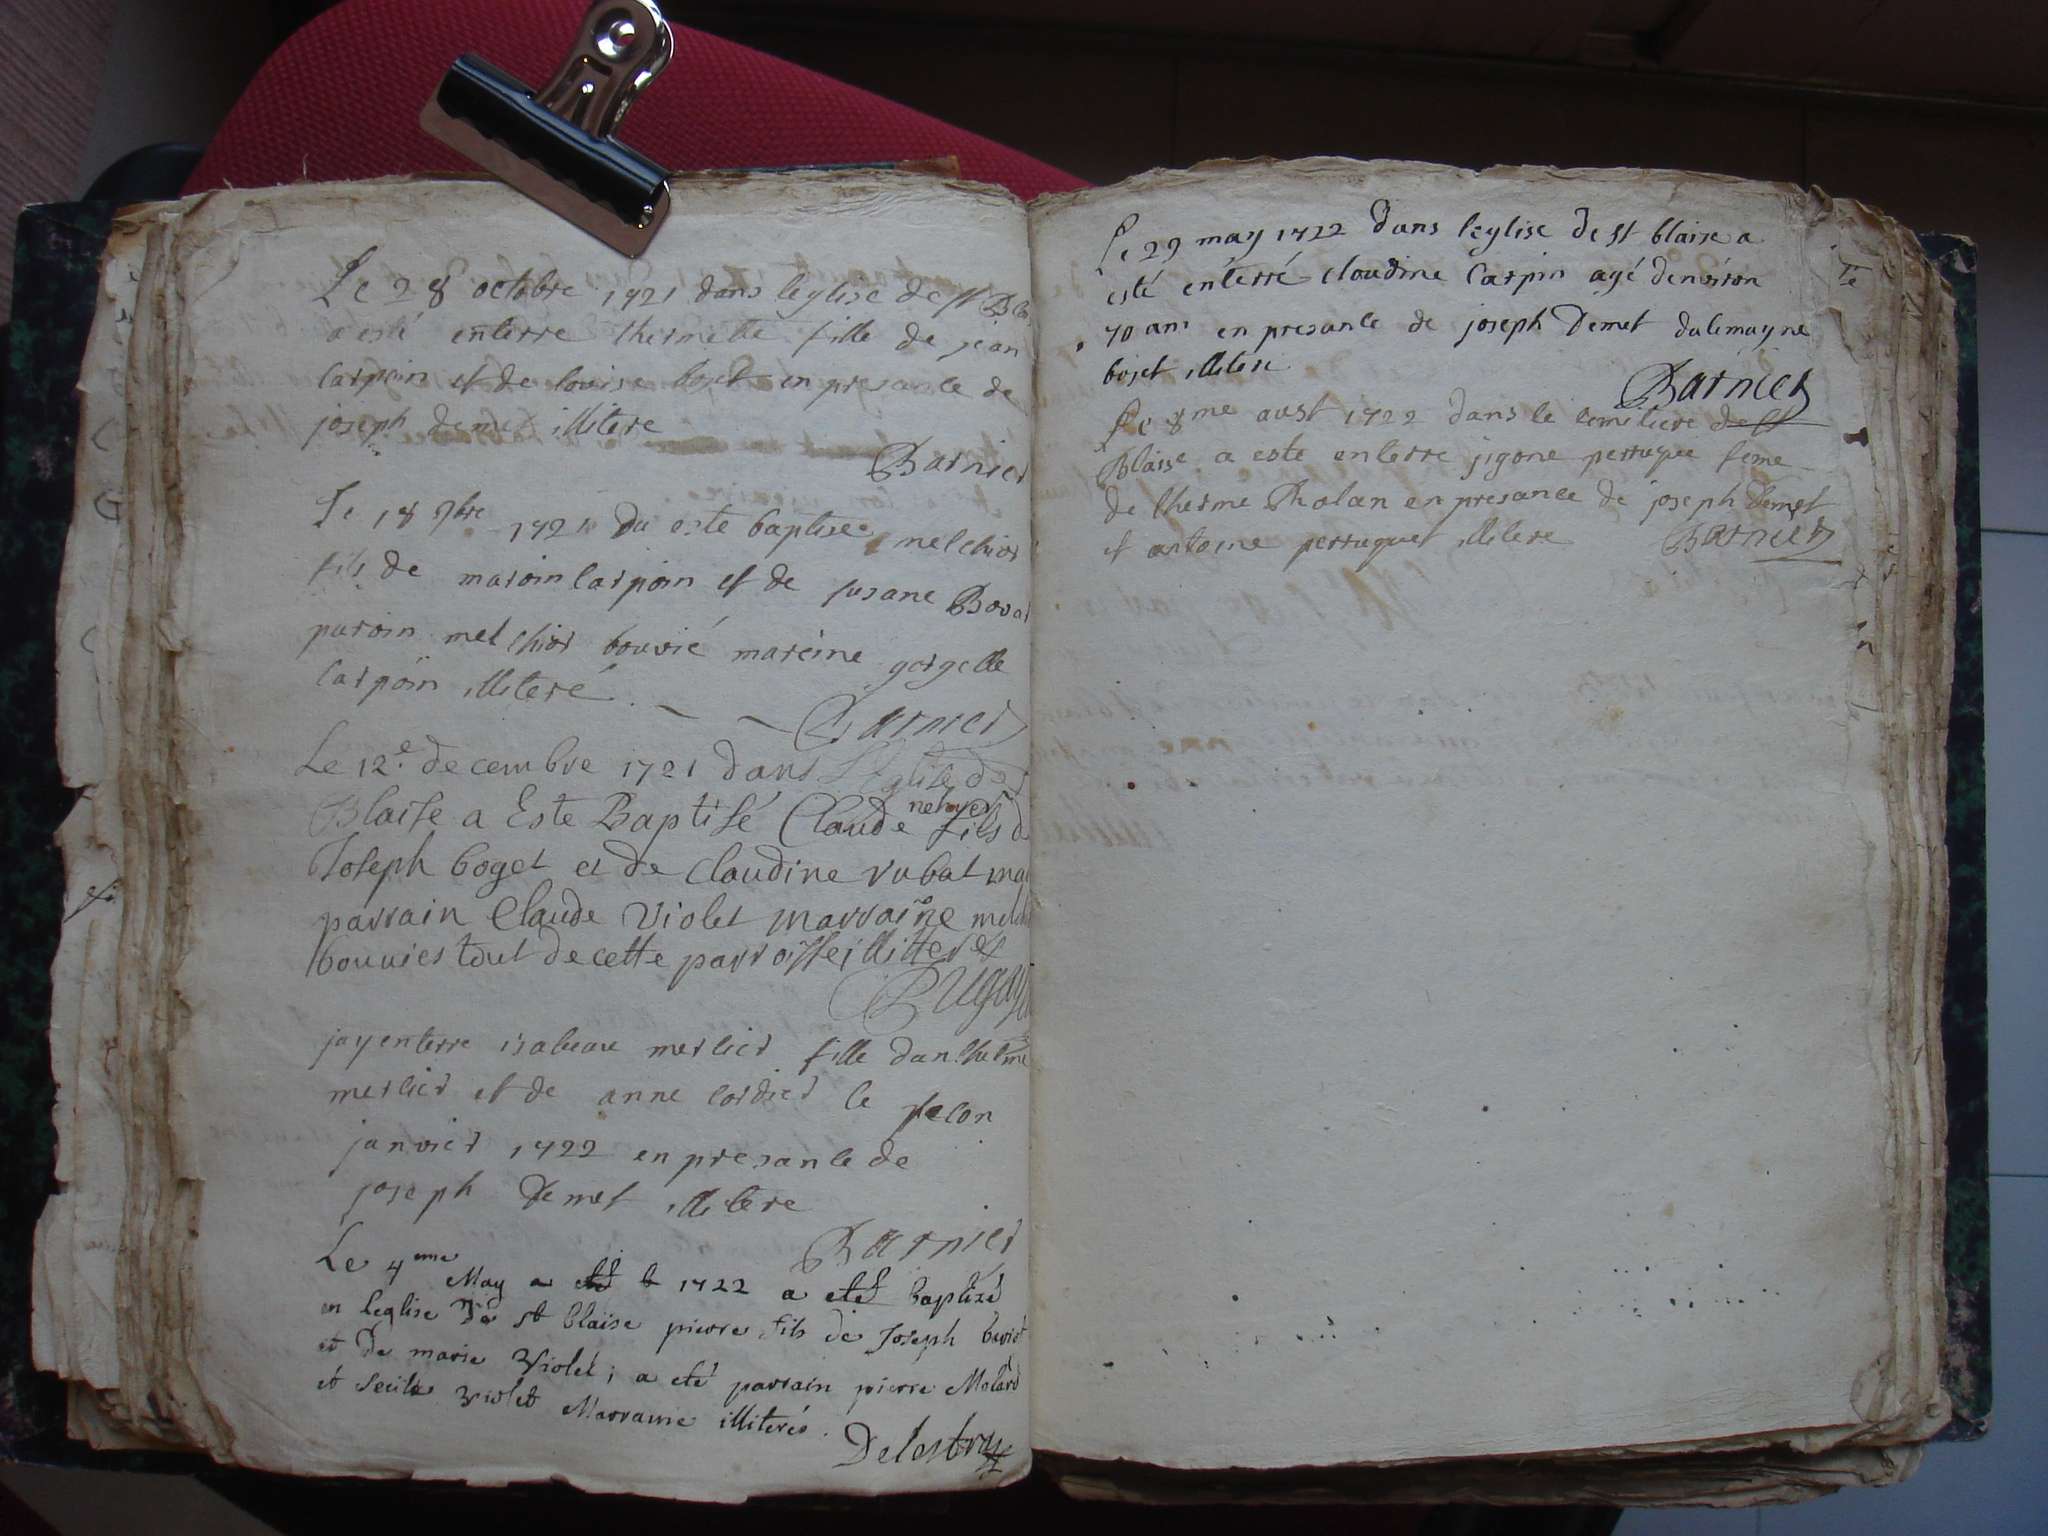 Le 28 octobre 1721 dans leglise de st
a esté enterre thermette fille de jean
Carpin et de louise boget en presance de
joseph demet illitere
Barnier
Le 18 9bre 1721 da este baptisee melchior
fils de maroin Carpoin et de susane
paroin melchior bouvié mareine gorgette
Carpöin illiteré
Barnier
Le 12.e decembre 1721 dans L'Eglise de
Blaise a Este Baptisé Claude fils d
Joseph boget et de Claudine rubat
parrain Claude Violet marraine
bouvies tout de cette parroisse illitteres
jay enterre isabeau merlier fille danthelme
merlier et de anne Cordier le secon
janvier 1722 en presance de
joseph Demet illitere
Barnier
Le 4eme May a eté b 1722 a eté baptizé
en leglise de st blaise pierre fils de Joseph
et De marie Violet; a eté parrain pierre Molard
et Secile Violet Marraine illiterés.
Delestraz
Le 29 may 1722 dans leglise de st blaise a
esté enterré claudine Carpin agé denviron
70 ans en presance de joseph Demet dalemayne
bojet illitere
Barnier
Le 8me aust 1722 dans le cemetiere de st
Blaise a este enterre jigone perruque feme
de therme Rholan en presance de joseph demet
et antoine perruquet illitere Barnier